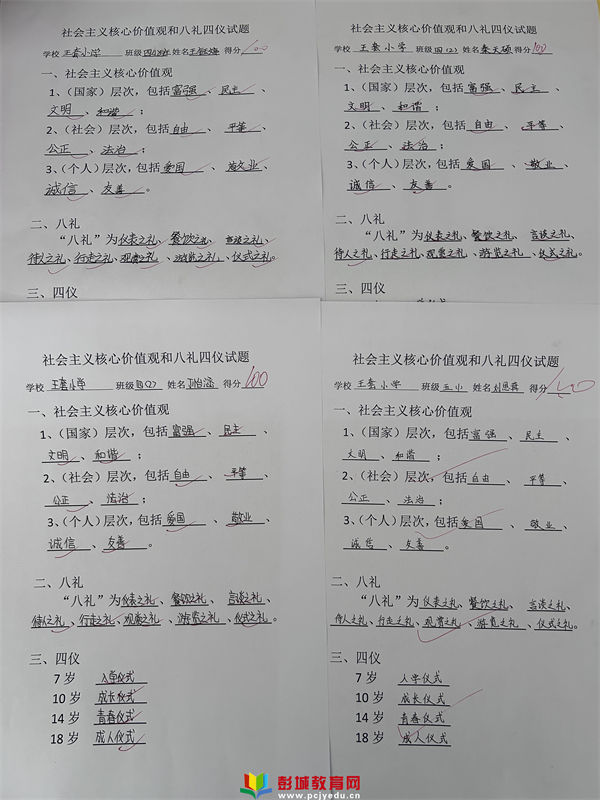 社会主义核心价值观和八礼四仪试题
学校 王套小学 班级 姓名 得分 100
一、社会主义核心价值观
1、(国家)层次,包括富强、民主、
文明、和谐;
2、(社会)层次,包括自由、平等、
公正、法治;
3、(个人)层次,包括爱国、敬业、
诚信、友善。
二、八礼
“八礼”为仪表之礼、餐饮之礼、言谈之礼、
待人之礼、行走之礼、观赏之礼、游览之礼、仪式之礼。
三、四仪
社会主义核心价值观和八礼四仪试题
学校 王套小学 班级 四(2) 姓名 秦天硕 得分 100
一、社会主义核心价值观
1、(国家)层次,包括富强、民主、
文明、和谐;
2、(社会)层次,包括自由、平等、
公正、法治;
3、(个人)层次,包括爱国、敬业、
诚信、友善。
二、八礼
“八礼”为仪表之礼、餐饮之礼、言谈之礼、
待人之礼、行走之礼、观赏之礼、游览之礼、仪式之礼。
三、四仪
社会主义核心价值观和八礼四仪试题
学校 王套小学 班级 四(2) 姓名 得分 100
一、社会主义核心价值观
1、(国家)层次,包括富强、民主、
文明、和谐;
2、(社会)层次,包括自由、平等、
公正、法治;
3、(个人)层次,包括爱国、敬业、
诚信、友善。
二、八礼
“八礼”为仪表之礼、餐饮之礼、言谈之礼、
待人之礼、行走之礼、观赏之礼、游览之礼、仪式之礼。
三、四仪
7岁 入学仪式
10岁 成长仪式
14岁 青春仪式
18岁 成人仪式
社会主义核心价值观和八礼四仪试题
学校 王套小学 班级 姓名 得分 100
一、社会主义核心价值观
1、(国家)层次,包括富强、民主、
文明、和谐;
2、(社会)层次,包括自由、平等、
公正、法治;
3、(个人)层次,包括爱国、敬业、
诚信、友善。
二、八礼
“八礼”为仪表之礼、餐饮之礼、言谈之礼、
待人之礼、行走之礼、观赏之礼、游览之礼、仪式之礼。
三、四仪
7岁 入学仪式
10岁 成长仪式
14岁 青春仪式
18岁 成人仪式
彭城教育网
www.pcjyedu.cn